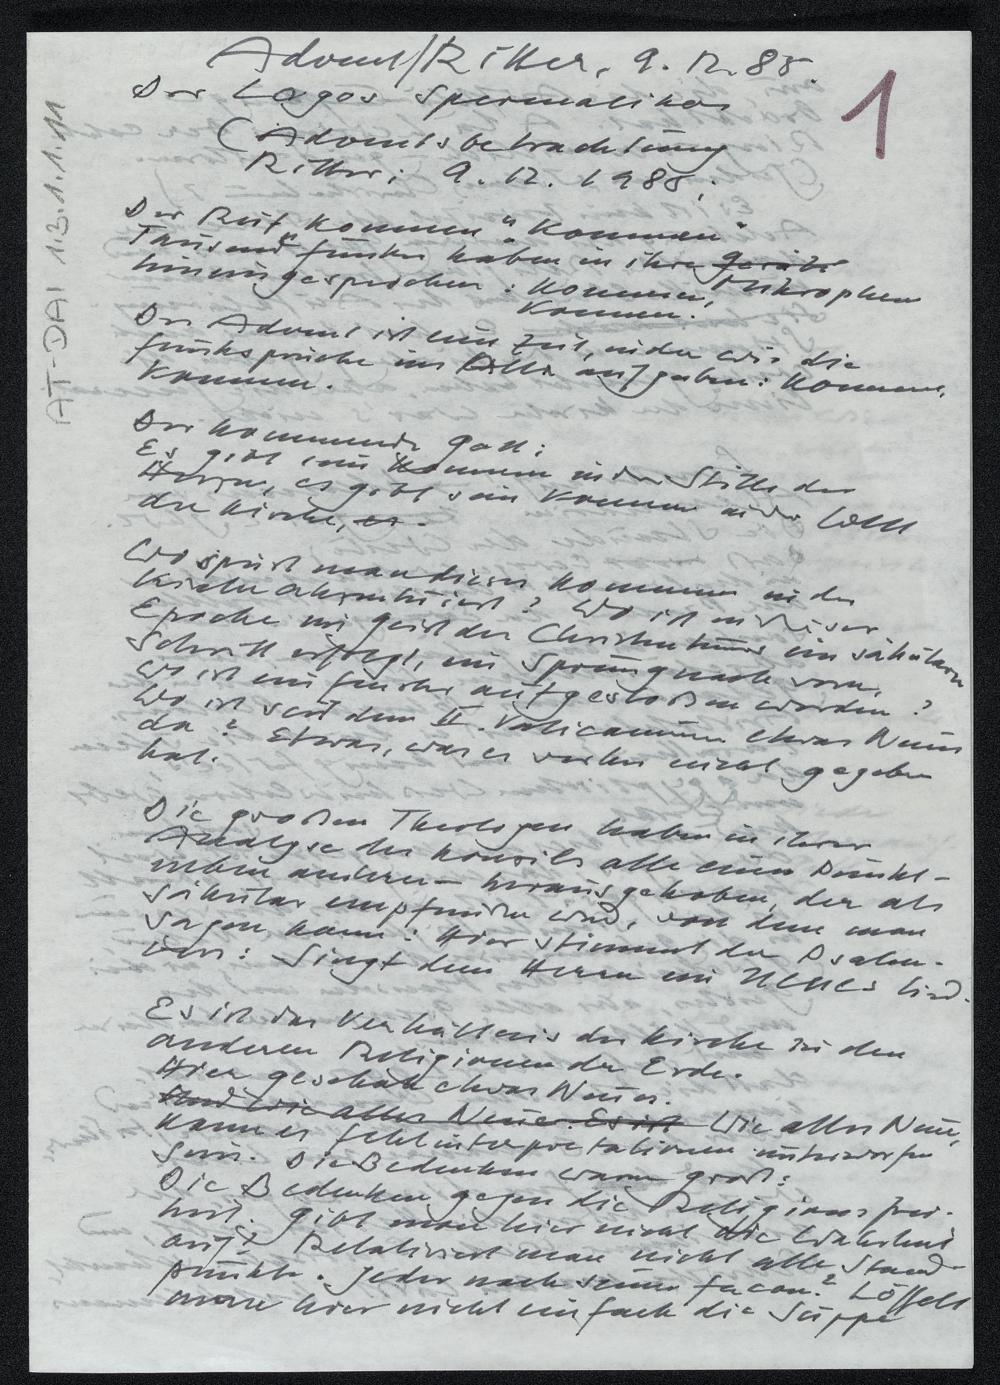 Advent/Ritter, 9. 12. 85.
1
AT-DAI 1.3.1.1.11
Der Logos Spermatikos
(Adventsbetrachtung
Ritter, 9. 12. 1985.
Der Ruf „Kommen“ „Kommen“
Tausend Funker haben in ihre Geräte
Mikrophone
hineingesprochen: Kommen,
Kommen.
Der Advent ist eine Zeit, in der wir die
Funksprüche ins All aufgeben: Kommen,
Kommen.
Der kommende Gott:
Es gibt ein Kommen in der Stille des
Herzens, es gibt sein Kommen in der Welt
der Kirche, er.
Wo spürt man dieses Kommen in der
Kirche? Wo ist in dieser
Epoche im Geist des Christentums ein säkularer
Schritt erfolgt, ein Sprung nach vorn.
Wo ist ein Fenster aufgestoßen worden?
Wo ist seit dem II. Vaticanum etwas Neues
da? Etwas, was es vorher nicht gegeben
hat.
Die großen Theologen haben in ihrer
Analyse des Konzils alle einen Punkt –
neben anderen – herausgehoben, der als
säkular empfunden wird, von dem man
sagen kann: Hier stimmt der Psalm-
vers: Singt dem Herrn ein NEUES Lied.
Es ist das Verhältnis der Kirche zu den
anderen Religionen der Erde.
Hier geschah etwas Neues.
Und wie alles Neue. Es ist Wie alles Neue,
kann es Fehlinterpretationen unterworfen
sein. Die Bedenken waren groß:
Die Bedenken gegen die Religionsfrei-
heit. Gibt man hier nicht die Wahrheit
auf? Relativiert man nicht alle Stand-
punkte. Jeder nach seiner Facon? Löffelt
man hier nicht einfach die Suppe